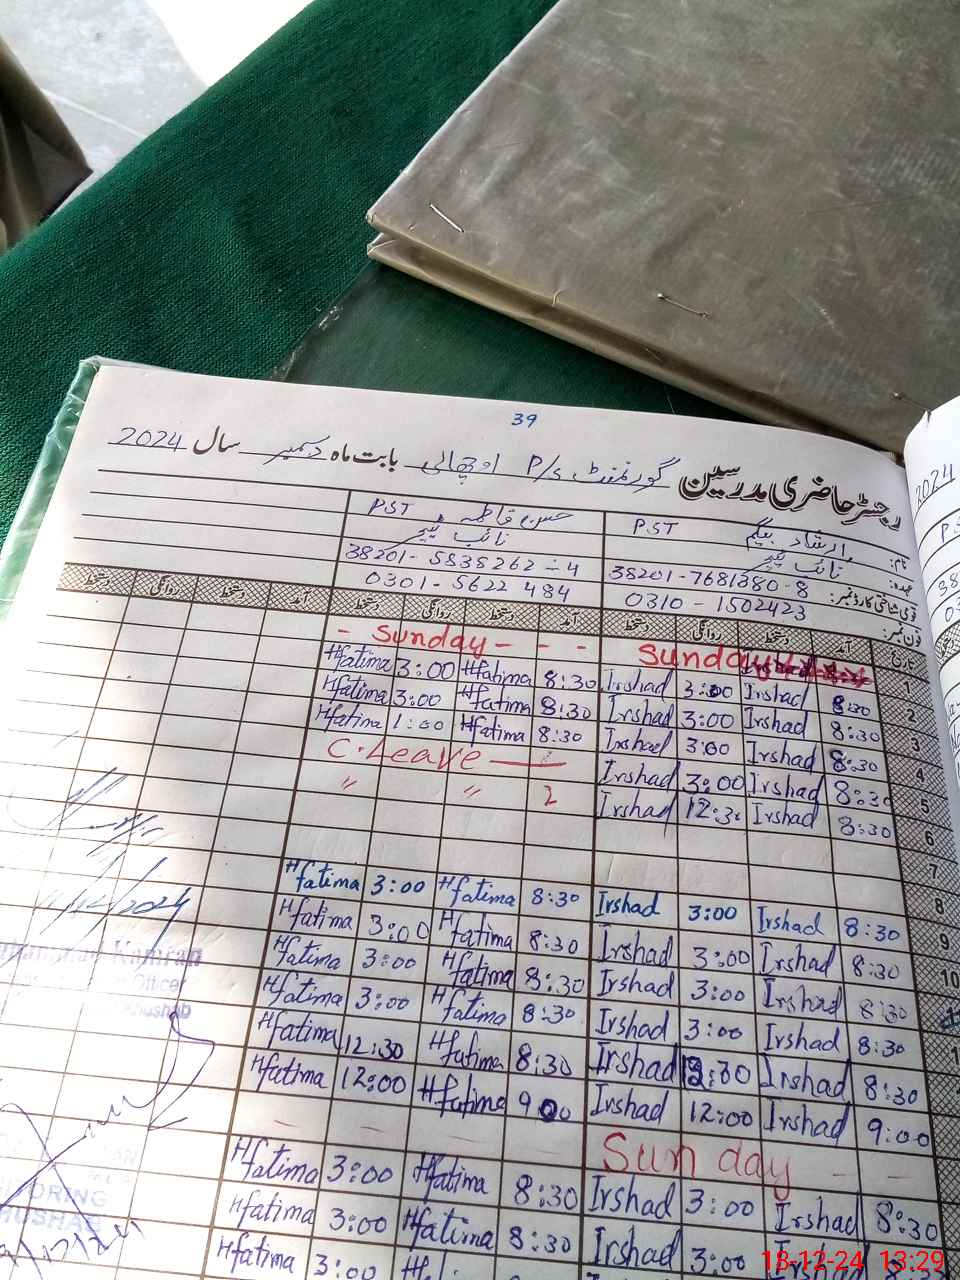 39
رجسٹر حاضری مدرسین گورنمنٹ P/S اوچھالی بابت ماہ دسمبر سال 2024
نام: ارشاد بیگم PST فاطمہ PST
عہدہ: نائب
قومی شناختی کارڈ نمبر: 38201-7681380-8 38201-5838262-4
فون نمبر: 0310-1502423 0301-5622484
تاریخ آمد دستخط روانگی دستخط آمد دستخط روانگی دستخط آمد دستخط روانگی دستخط
1 Sunday - Sunday - - -
2 8:30 Irshad 3:00 Irshad 8:30 Hfatima 3:00 Hfatima
3 8:30 Irshad 3:00 Irshad 8:30 Hfatima 3:00 Hfatima
4 8:30 Irshad 3:00 Irshad 8:30 Hfatima 1:00 Hfatima
5 8:30 Irshad 3:00 Irshad C.Leave
6 8:30 Irshad 12:30 Irshad 2 〃 〃
7
8
9 8:30 Irshad 3:00 Irshad 8:30 Hfatima 3:00 Hfatima
10 8:30 Irshad 3:00 Irshad 8:30 Hfatima 3:00 Hfatima
11 8:30 Irshad 3:00 Irshad 8:30 Hfatima 3:00 Hfatima
8:30 Irshad 3:00 Irshad 8:30 Hfatima 3:00 Hfatima
8:30 Irshad Irshad 8:30 Hfatima 12:30 Hfatima
9:00 Irshad 12:00 Irshad 9:00 Hfatima 12:00 Hfatima
Sunday - -
8:30 Irshad 3:00 Irshad 8:30 Hfatima 3:00 Hfatima
8:30 Irshad 3:00 Irshad 8:30 Hfatima 3:00 Hfatima
Irshad 3:00 Hfatima
Kamran
Officer
Khushab
2024
18-12-24 13:29